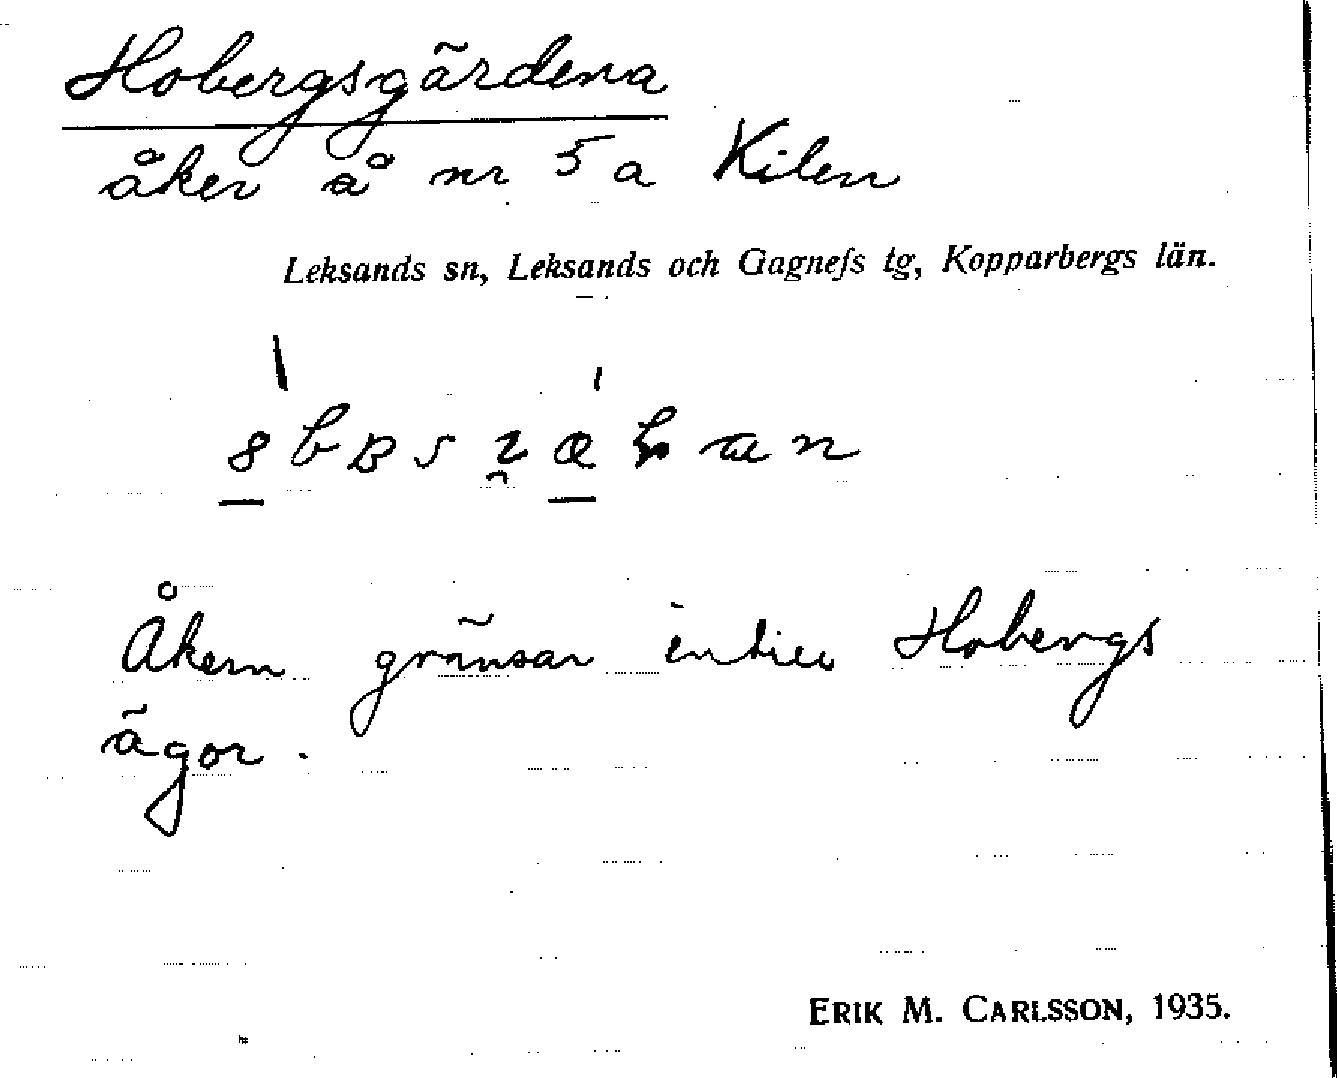 Hobergsgärdena
åker å nr 5a Kilen
Leksands sn, Leksands och Gagnefs tg, Kopparbergs län.
Åkern gränsar intill Hobergs
ägor.
ERIK M. CARLSSON, 1935.